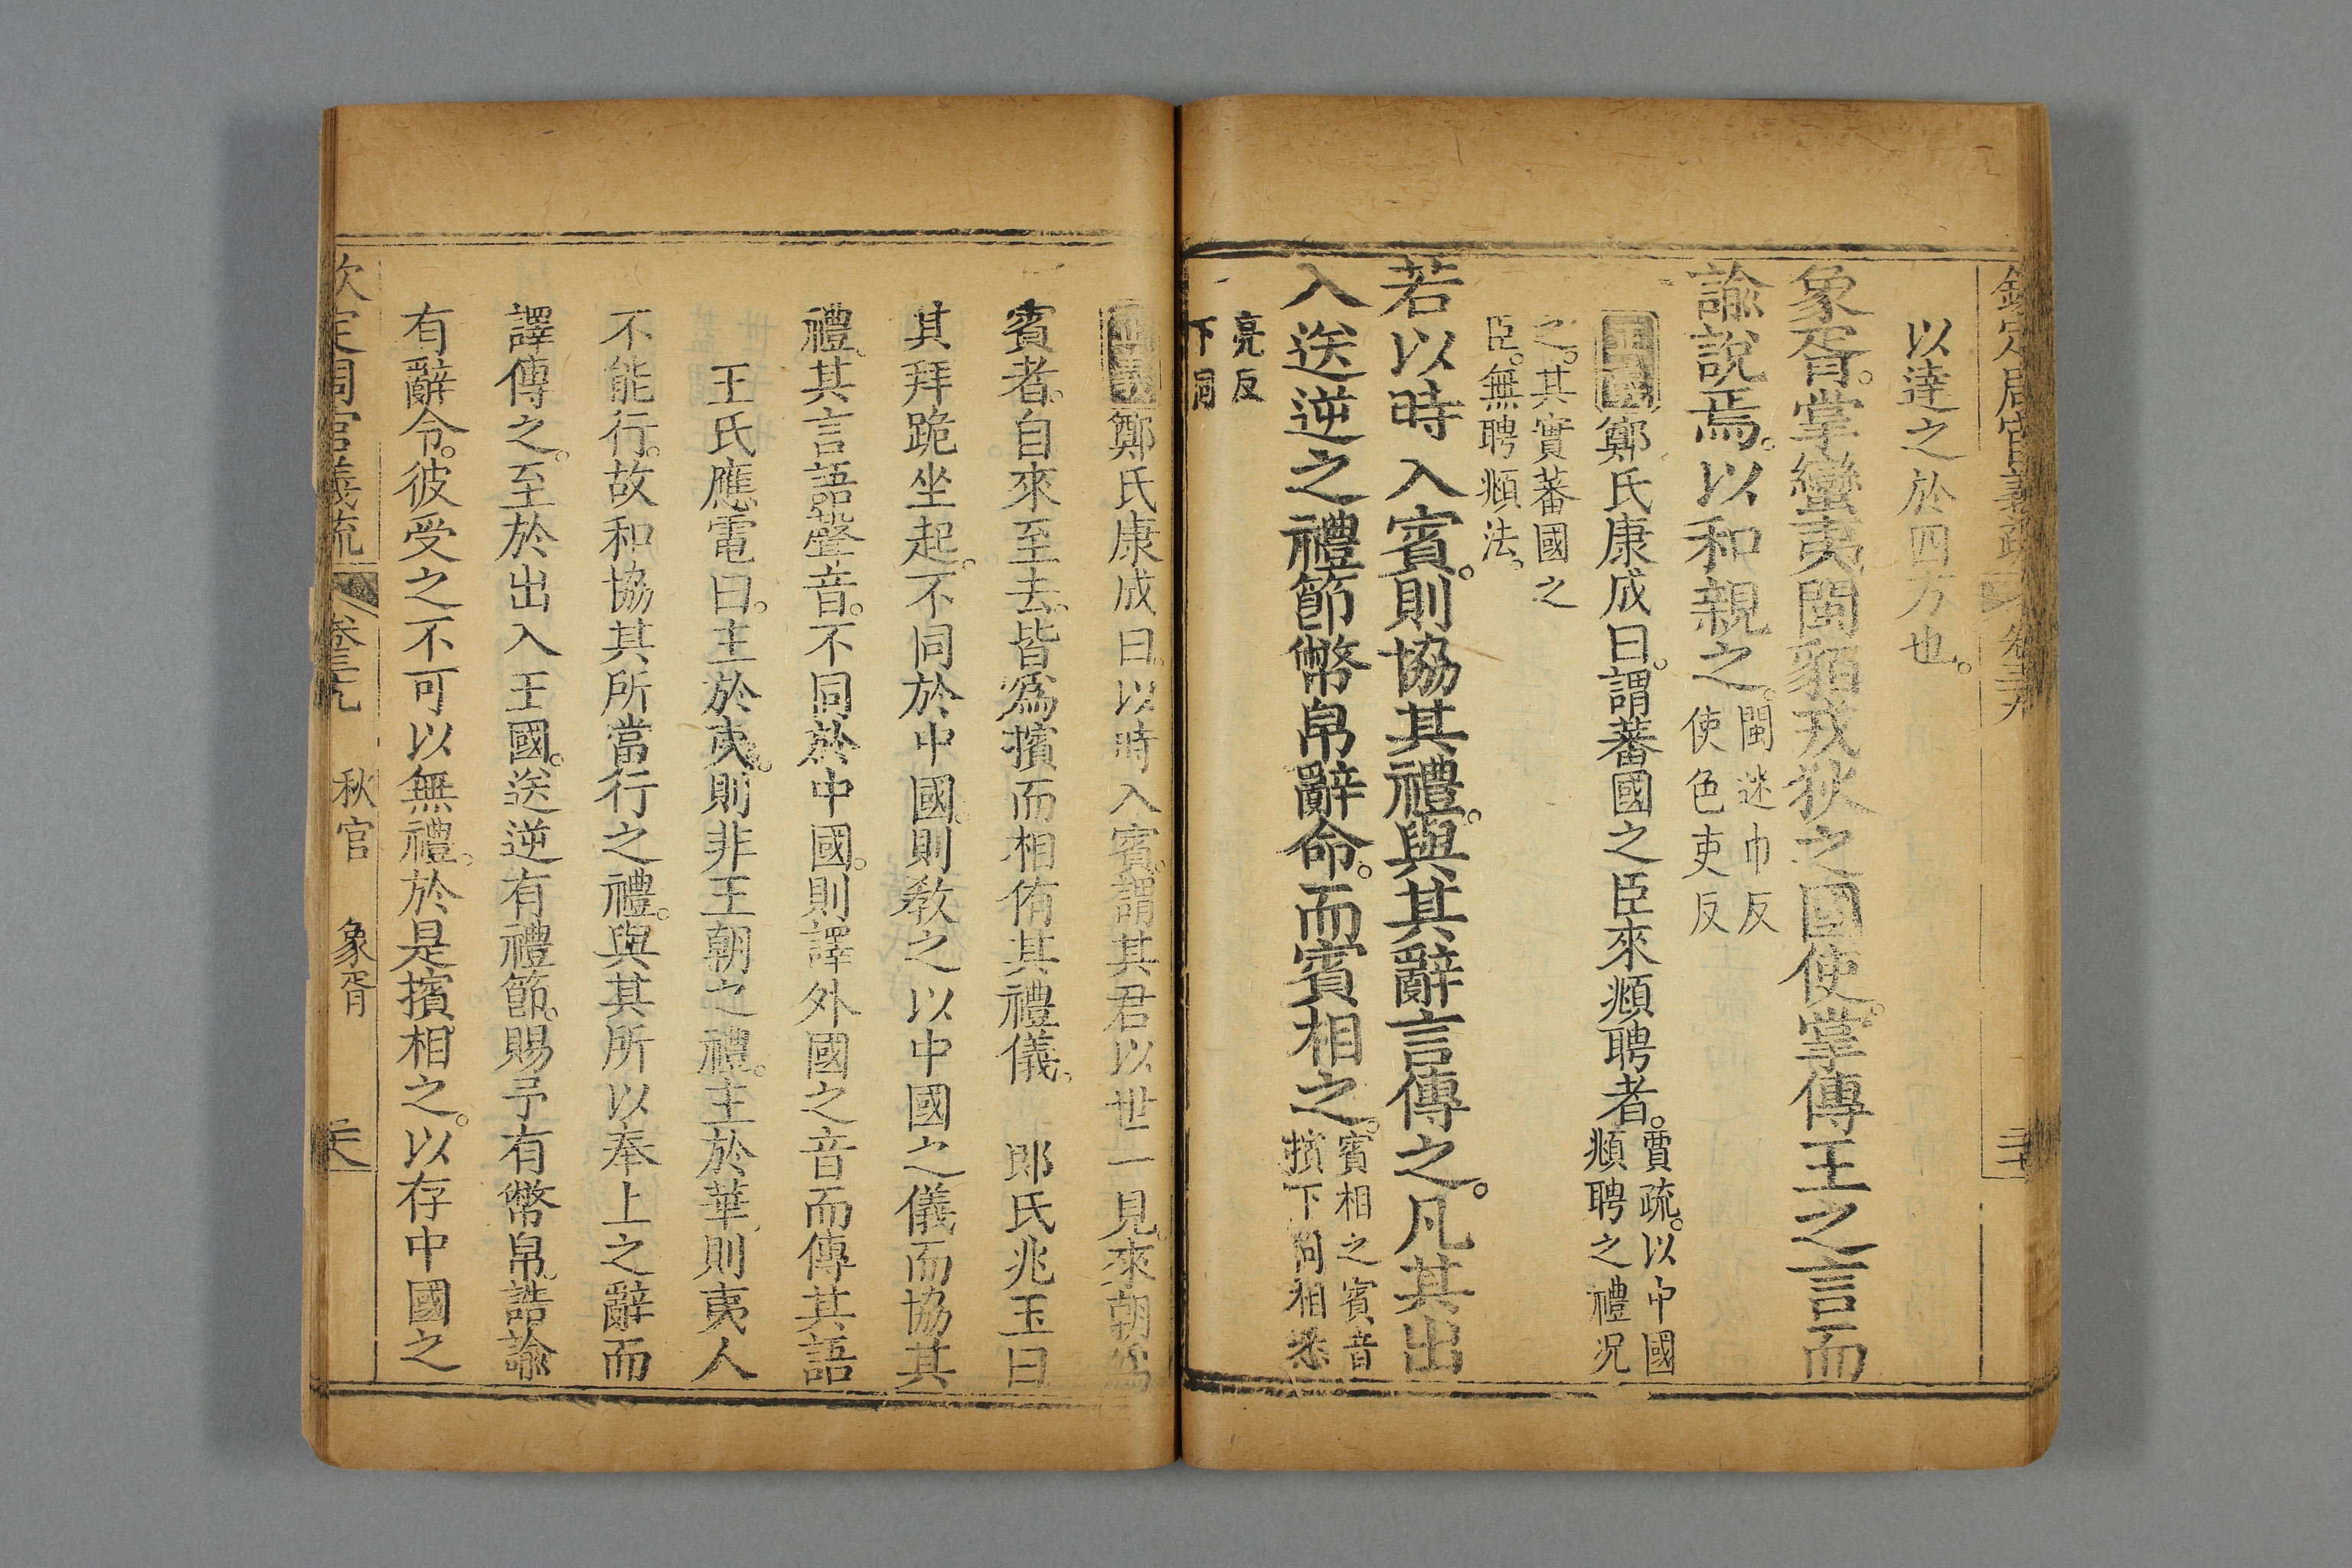 欽定周官義疏 卷三十九
以達之於四方也。
象胥。掌蠻夷閩貉戎狄之國使。掌傳王之言而
諭說焉。以和親之。閩迷巾反使色吏反
鄭氏康成曰。謂蕃國之臣來頫聘者。賈疏。以中國頫聘之禮况
之。其實蕃國之臣。無聘頫法。
若以時入賓。則協其禮。與其辭言傳之。凡其出
入送逆之禮節幣帛辭命。而賓相之。賓相之賓音擯下同相息
亮反下同
鄭氏康成曰。以時入賓。謂其君以世一見。來朝爲
賓者。自來至去。皆爲擯而相侑其禮儀。 郎氏兆玉曰
其拜跪坐起。不同於中國。則敎之以中國之儀而協其
禮。其言語聲音。不同於中國。則譯外國之音而傳其語
王氏應電曰。主於夷。則非王朝之禮。主於華。則夷人
不能行。故和協其所當行之禮。與其所以奉上之辭而
譯傳之。至於出入王國。送逆有禮節。賜予有幣帛。誥諭
有辭令。彼受之不可以無禮。於是擯相之。以存中國之
欽定周官義疏 卷三十九 秋官 象胥